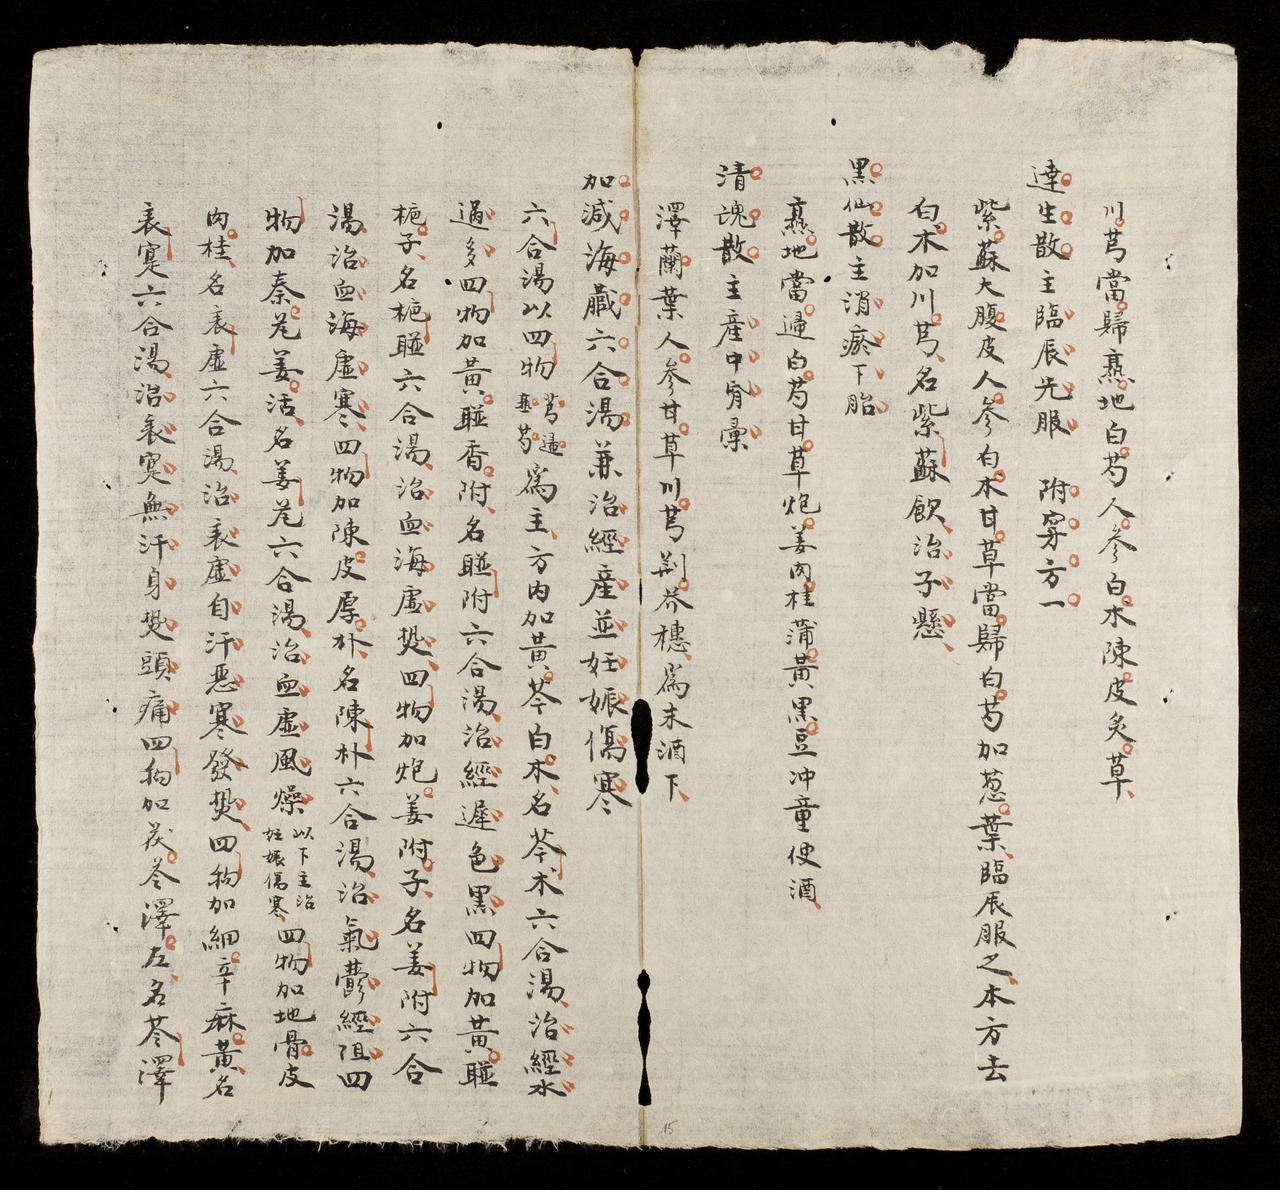 川芎當歸熟地白芍人參白朮陳皮炙草
達生散主臨辰先服　附穿方一
紫蘇大腹皮人參白朮甘草當歸白芍加葱葉臨辰服之本方去
白朮加川芎名紫蘇飲治子懸
黑仙散主消瘀下胎
熟地當歸白芍甘草炮姜肉桂蒲黃黑豆冲童便酒
清魂散主產中
澤蘭葉人參甘草川芎荆芥穗為末酒下
加減海藏六合湯兼治經產並妊娠傷寒
六合湯以四物芎歸熟芍為主方內加黃芩白朮名芩朮六合湯治經水
過多四物加黃連香附名連附六合湯治經遲色黑四物加黃連
梔子名梔連六合湯治血海虛熱四物加炮姜附子名姜附六合
湯治血海虛寒四物加陳皮厚朴名陳朴六合湯治氣鬱經阻四
物加秦艽羌活名羌艽六合湯治血虛風燥以下主治妊娠傷寒四物加地骨皮
肉桂名表虛六合湯治表虛自汗惡寒發熱四物加細辛麻黃名
表寔六合湯治表寔無汗身熱頭痛四物加茯苓澤左名苓澤
15